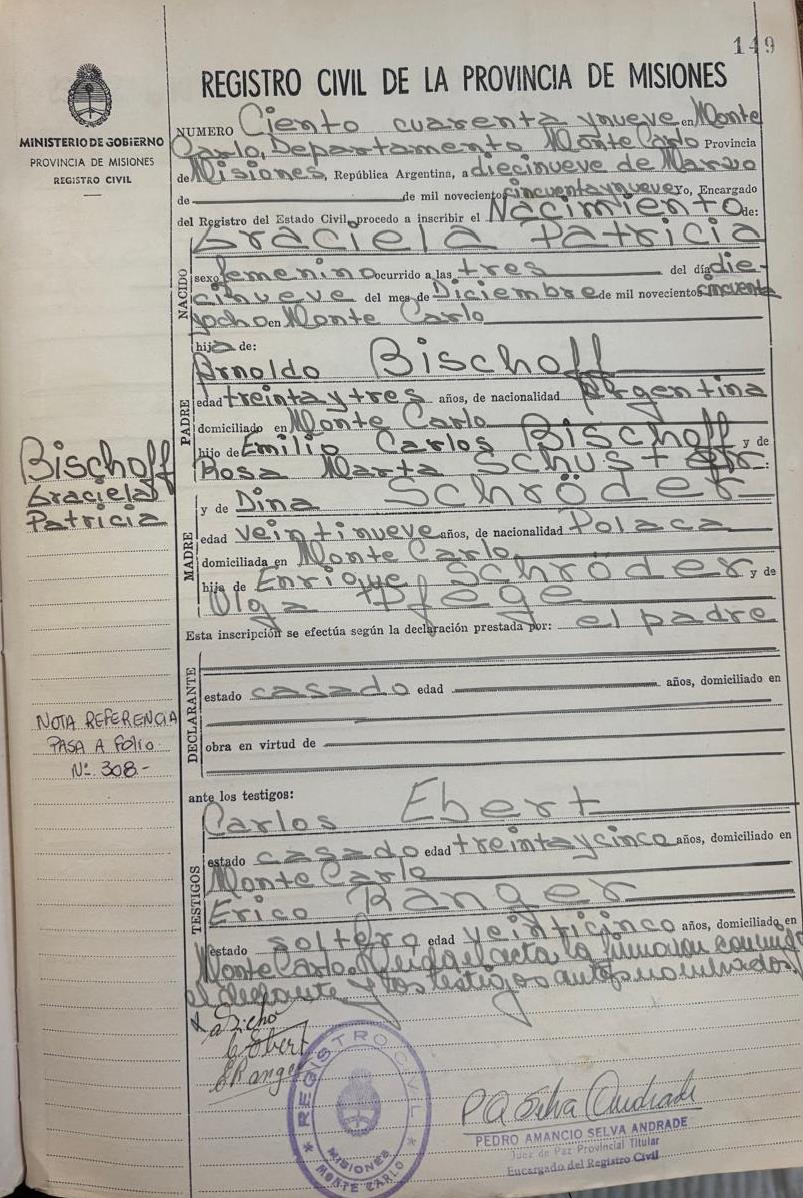 149
MINISTERIO DE GOBIERNO
PROVINCIA DE MISIONES
REGISTRO CIVIL
REGISTRO CIVIL DE LA PROVINCIA DE MISIONES
NUMERO Ciento cuarenta y nueve en Monte
Carlo, Departamento Monte Carlo Provincia
de Misiones, República Argentina, a diecinueve de Marzo
de de mil novecientos cincuenta y nueve yo, Encargado
del Registro del Estado Civil, procedo a inscribir el Nacimiento de:
NACIDO
Graciela Patricia
sexo femenino ocurrido a las tres del día die-
cinueve del mes de Diciembre de mil novecientos cincuenta
y ocho en Monte Carlo
hija de:
PADRE
Arnoldo Bischoff
edad treinta y tres años, de nacionalidad Argentina
domiciliado en Monte Carlo
hijo de Emilio Carlos Bischoff y de
Rosa Marta Schuster
Bischoff
Graciela
Patricia
MADRE
y de Dina Schröder
edad veintinueve años, de nacionalidad Polaca
domiciliada en Monte Carlo
hija de Enrique Schröder y de
Olga Pfege
Esta inscripción se efectúa según la declaración prestada por: el padre
DECLARANTE
estado casado edad años, domiciliado en
obra en virtud de
NOTA REFERENCIA
PASA A folio
Nº 308.-
ante los testigos:
TESTIGOS
Carlos Ebert
estado casado edad treinta y cinco años, domiciliado en
Monte Carlo
Erico Ranger
estado soltero edad veinticinco años, domiciliado en
Monte Carlo. Leída el acta la firman conmigo
el declarante y los testigos antes nombrados.
C Ebert
E Ranger
REGISTRO CIVIL
MISIONES
MONTE CARLO
P A Selva Andrade
PEDRO AMANCIO SELVA ANDRADE
Juez de Paz Provincial Titular
Encargado del Registro Civil